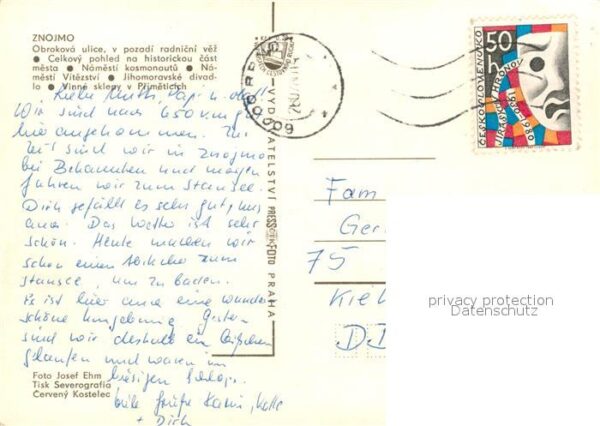 ZNOJMO
Obroková ulice, v pozadí radniční věž
● Celkový pohled na historickou část
města ● Náměstí kosmonautů ● Ná-
městí Vítězství ● Jihomoravské divad-
lo ● Vinné sklepy v Příměticích
Liebe Mutti, Papi u.
Wir sind nach 650 km gut
hier angekommen. Zur
Zeit sind wir in Znojmo
bei Bekannten und morgen
fahren wir zum Stausee.
Dirk gefällt es sehr gut, uns
auch. Das Wetter ist sehr
schön. Heute machten wir
schon einen Abstecher zum
Stausee, um zu baden.
Es ist hier auch eine wunder-
schöne Umgebung. Gestern
sind wir deshalb ein bißchen
gelaufen und waren im
hiesigen
Viele Grüße Karin,
+ Dirk
Foto Josef Ehm
Tisk Severografia
Červený Kostelec
VYDAVATELSTVÍ PRESSFOTO PRAHA
50
h
ČESKOSLOVENSKO
JIRÁSKŮV HRONOV
1930-1980
Fam
Ger
75
Kiek
DD
privacy protection
Datenschutz